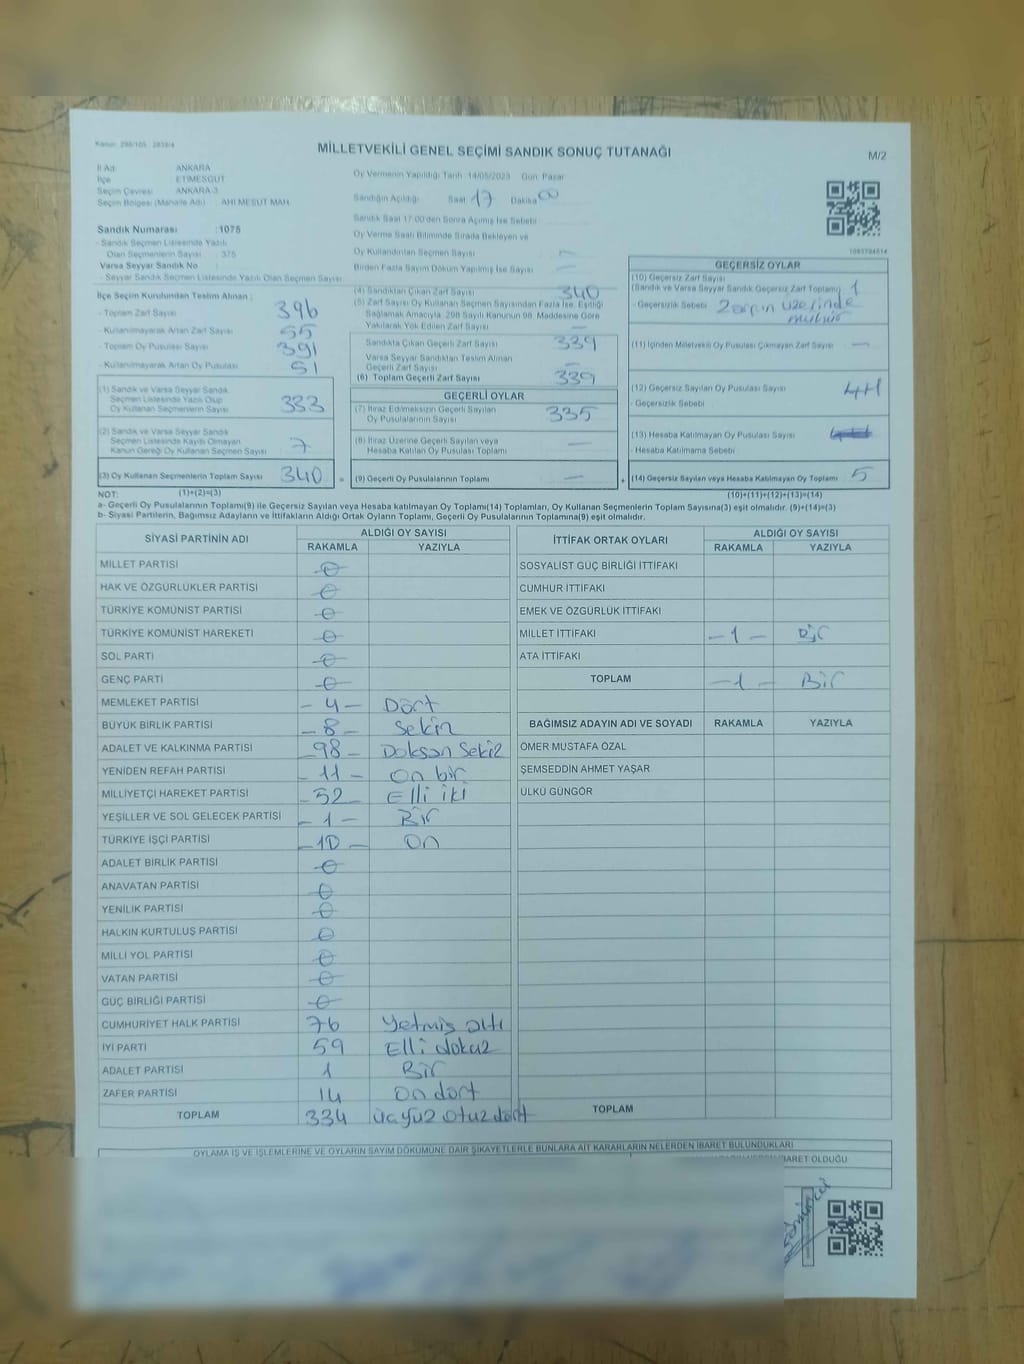 Kanun: 298/105 2839/4
MİLLETVEKİLİ GENEL SEÇİMİ SANDIK SONUÇ TUTANAĞI
M/2
İl Adı ANKARA
İlçe ETİMESGUT
Seçim Çevresi ANKARA-3
Seçim Bölgesi (Mahalle Adı) AHİ MESUT MAH.
Sandık Numarası :1075
- Sandık Seçmen Listesinde Yazılı
Olan Seçmenlerin Sayısı 375
Varsa Seyyar Sandık No :
- Seyyar Sandık Seçmen Listesinde Yazılı Olan Seçmen Sayısı:
İlçe Seçim Kurulundan Teslim Alınan :
- Toplam Zarf Sayısı 396
- Kullanılmayarak Artan Zarf Sayısı 55
- Toplam Oy Pusulası Sayısı 391
- Kullanılmayarak Artan Oy Pusulası 51
(1) Sandık ve Varsa Seyyar Sandık
Seçmen Listesinde Yazılı Olup
Oy Kullanan Seçmenlerin Sayısı 333
(2) Sandık ve Varsa Seyyar Sandık
Seçmen Listesinde Kayıtlı Olmayan
Kanun Gereği Oy Kullanan Seçmen Sayısı 7
(3) Oy Kullanan Seçmenlerin Toplam Sayısı 340
Oy Vermenin Yapıldığı Tarih 14/05/2023 Gün: Pazar
Sandığın Açıldığı Saat 17 Dakika 00
Sandık Saat 17:00'den Sonra Açılmış İse Sebebi
Oy Verme Saati Bitiminde Sırada Bekleyen ve
Oy Kullandırılan Seçmen Sayısı —
Birden Fazla Sayım Döküm Yapılmış İse Sayısı —
(4) Sandıktan Çıkan Zarf Sayısı 340
(5) Zarf Sayısı Oy Kullanan Seçmen Sayısından Fazla İse, Eşitliği
Sağlamak Amacıyla, 298 Sayılı Kanunun 98. Maddesine Göre
Yakılarak Yok Edilen Zarf Sayısı —
Sandıkta Çıkan Geçerli Zarf Sayısı 339
Varsa Seyyar Sandıktan Teslim Alınan
Geçerli Zarf Sayısı —
(6) Toplam Geçerli Zarf Sayısı 339
GEÇERLİ OYLAR
(7) İtiraz Edilmeksizin Geçerli Sayılan
Oy Pusulalarının Sayısı 335
(8) İtiraz Üzerine Geçerli Sayılan veya
Hesaba Katılan Oy Pusulası Toplamı —
= (9) Geçerli Oy Pusulalarının Toplamı —
1093794514
GEÇERSİZ OYLAR
(10) Geçersiz Zarf Sayısı
(Sandık ve Varsa Seyyar Sandık Geçersiz Zarf Toplamı) 1
- Geçersizlik Sebebi Zarfın üzerinde
mühür
(11) İçinden Milletvekili Oy Pusulası Çıkmayan Zarf Sayısı —
(12) Geçersiz Sayılan Oy Pusulası Sayısı
- Geçersizlik Sebebi
(13) Hesaba Katılmayan Oy Pusulası Sayısı
- Hesaba Katılmama Sebebi
+ (14) Geçersiz Sayılan veya Hesaba Katılmayan Oy Toplamı 5
NOT: (1)+(2)=(3) (10)+(11)+(12)+(13)=(14)
a- Geçerli Oy Pusulalarının Toplamı(9) ile Geçersiz Sayılan veya Hesaba katılmayan Oy Toplamı(14) Toplamları, Oy Kullanan Seçmenlerin Toplam Sayısına(3) eşit olmalıdır. (9)+(14)=(3)
b- Siyasi Partilerin, Bağımsız Adayların ve İttifakların Aldığı Ortak Oyların Toplamı, Geçerli Oy Pusulalarının Toplamına(9) eşit olmalıdır.
SİYASİ PARTİNİN ADI ALDIĞI OY SAYISI
RAKAMLA YAZIYLA
MİLLET PARTİSİ 0
HAK VE ÖZGÜRLÜKLER PARTİSİ 0
TÜRKİYE KOMÜNİST PARTİSİ 0
TÜRKİYE KOMÜNİST HAREKETİ 0
SOL PARTİ 0
GENÇ PARTİ 0
MEMLEKET PARTİSİ - 4 - Dört
BÜYÜK BİRLİK PARTİSİ - 8 - Sekiz
ADALET VE KALKINMA PARTİSİ - 98 - Doksan Sekiz
YENİDEN REFAH PARTİSİ - 11 - On bir
MİLLİYETÇİ HAREKET PARTİSİ - 52 - Elli iki
YEŞİLLER VE SOL GELECEK PARTİSİ - 1 - Bir
TÜRKİYE İŞÇİ PARTİSİ - 10 - On
ADALET BİRLİK PARTİSİ 0
ANAVATAN PARTİSİ 0
YENİLİK PARTİSİ 0
HALKIN KURTULUŞ PARTİSİ 0
MİLLİ YOL PARTİSİ 0
VATAN PARTİSİ 0
GÜÇ BİRLİĞİ PARTİSİ 0
CUMHURİYET HALK PARTİSİ 76 Yetmiş altı
İYİ PARTİ 59 Elli dokuz
ADALET PARTİSİ 1 Bir
ZAFER PARTİSİ 14 On dört
TOPLAM 334 üçyüz otuz dört
İTTİFAK ORTAK OYLARI ALDIĞI OY SAYISI
RAKAMLA YAZIYLA
SOSYALİST GÜÇ BİRLİĞİ İTTİFAKI
CUMHUR İTTİFAKI
EMEK VE ÖZGÜRLÜK İTTİFAKI
MİLLET İTTİFAKI - 1 - Bir
ATA İTTİFAKI
TOPLAM - 1 - Bir
BAĞIMSIZ ADAYIN ADI VE SOYADI RAKAMLA YAZIYLA
ÖMER MUSTAFA ÖZAL
ŞEMSEDDİN AHMET YAŞAR
ÜLKÜ GÜNGÖR
TOPLAM
OYLAMA İŞ VE İŞLEMLERİNE VE OYLARIN SAYIM DÖKÜMÜNE DAİR ŞİKAYETLERLE BUNLARA AİT KARARLARIN NELERDEN İBARET BULUNDUKLARI
İBARET OLDUĞU